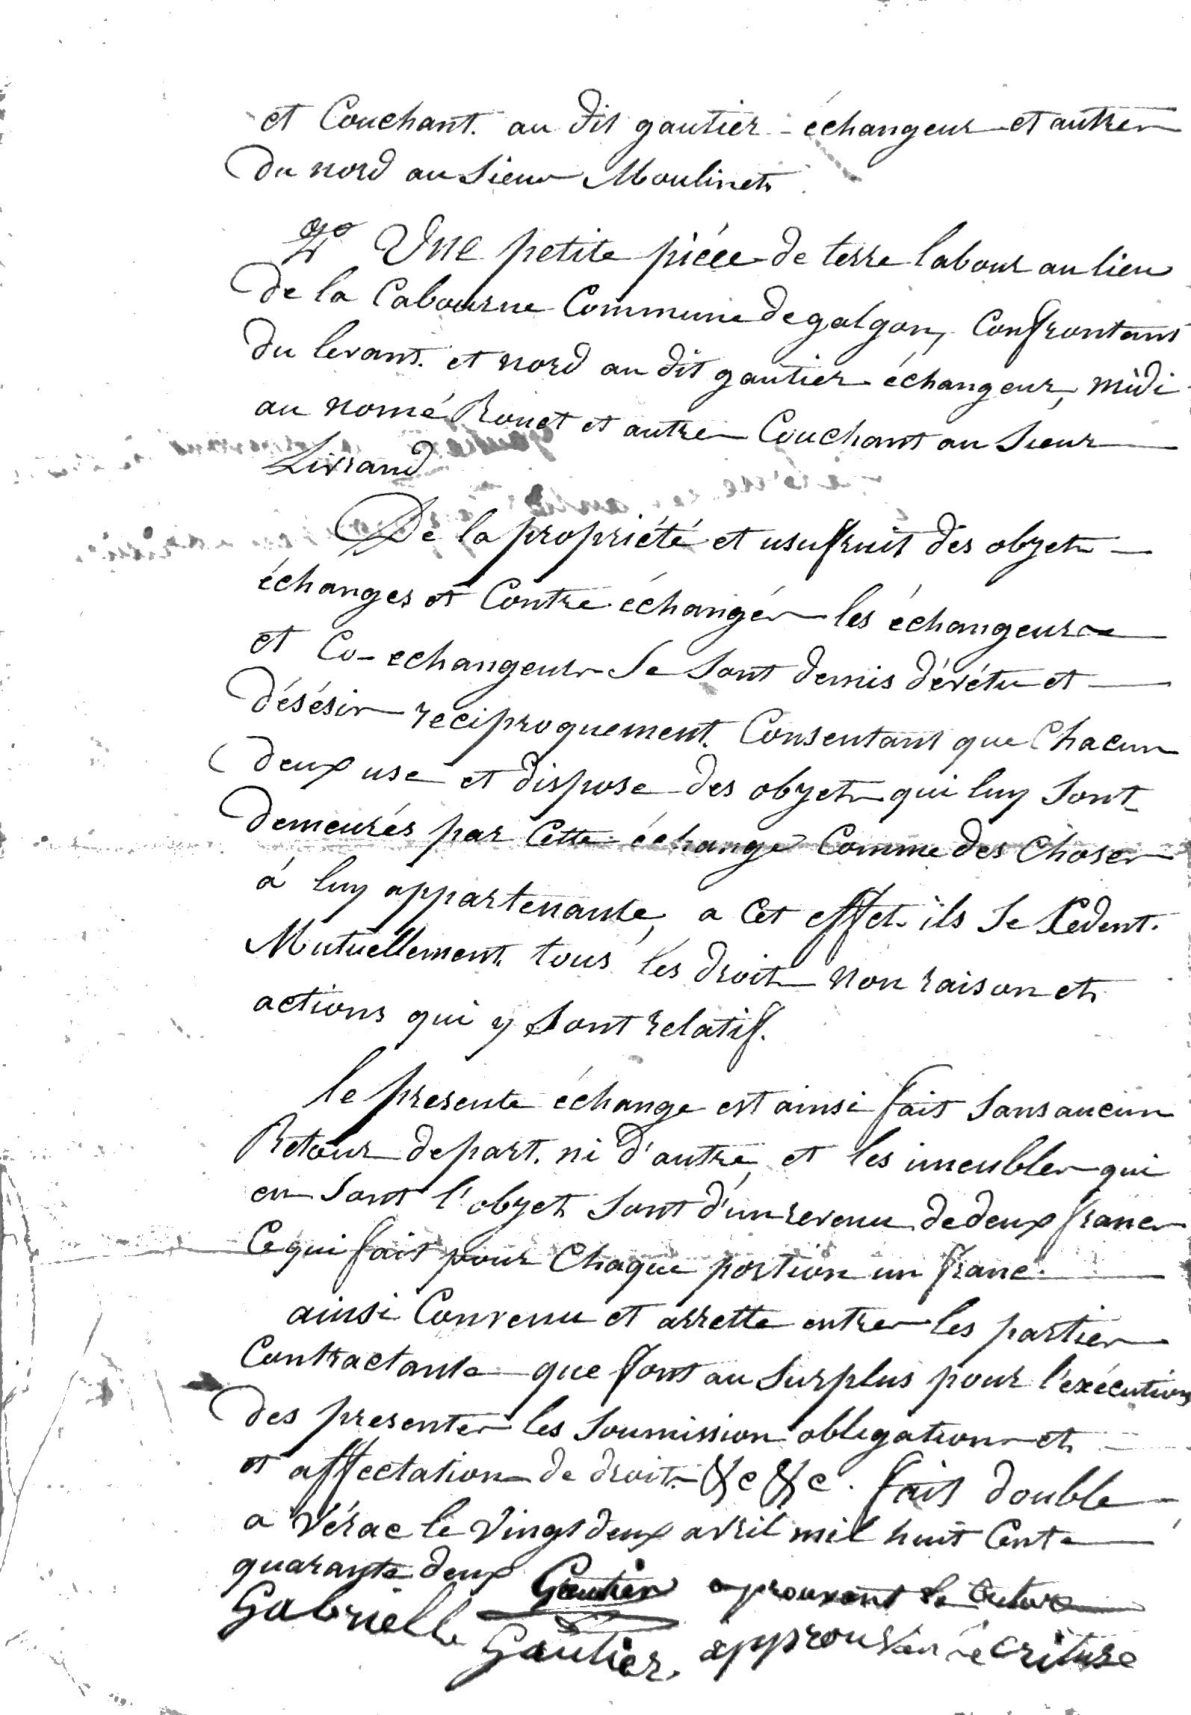 et Couchant. au dit gautier échangeur et autres
du nord au Sieur Moulinet
2° Une petite piéce de terre labour au lieu
de la Cabourne Commune de galgon, Confrontant
du levant. et nord au dit gautier échangeur, midi
au nomé Rouet et autres Couchant au Sieur
Livrand
De la propriété et usufruit des objets
échanges et Contre échangés les échangeurs
et Co-echangeurs Se Sont demis dévétu et
désésir reciproquement. Consentant que Chacun
deux use et dispose des objets qui luy Sont
demeurés par Cette échange Comme des Choses
á luy appartenante, a Cet effet ils Se Cédent.
Mutuellement tous les droits non raison et
actions qui y Sont relatif.
le presente échange est ainsi fait Sans aucun
Retour de part. ni d'autre, et les imeubles qui
en Sont l'objet Sont d'un revenu de deux francs
Ce qui fait pour Chaque portion un franc.
ainsi Convenu et arrette entre les parties
Contractante que font au Surplus pour l'exécution
des presentes les Soumission obligations et
et affectation de droits &c &c. fait double
a Vérac le Vingt deux avril mil huit Cent
quarante deux Gautier aprouvant
Gabrielle Gautier, approuvan écriture